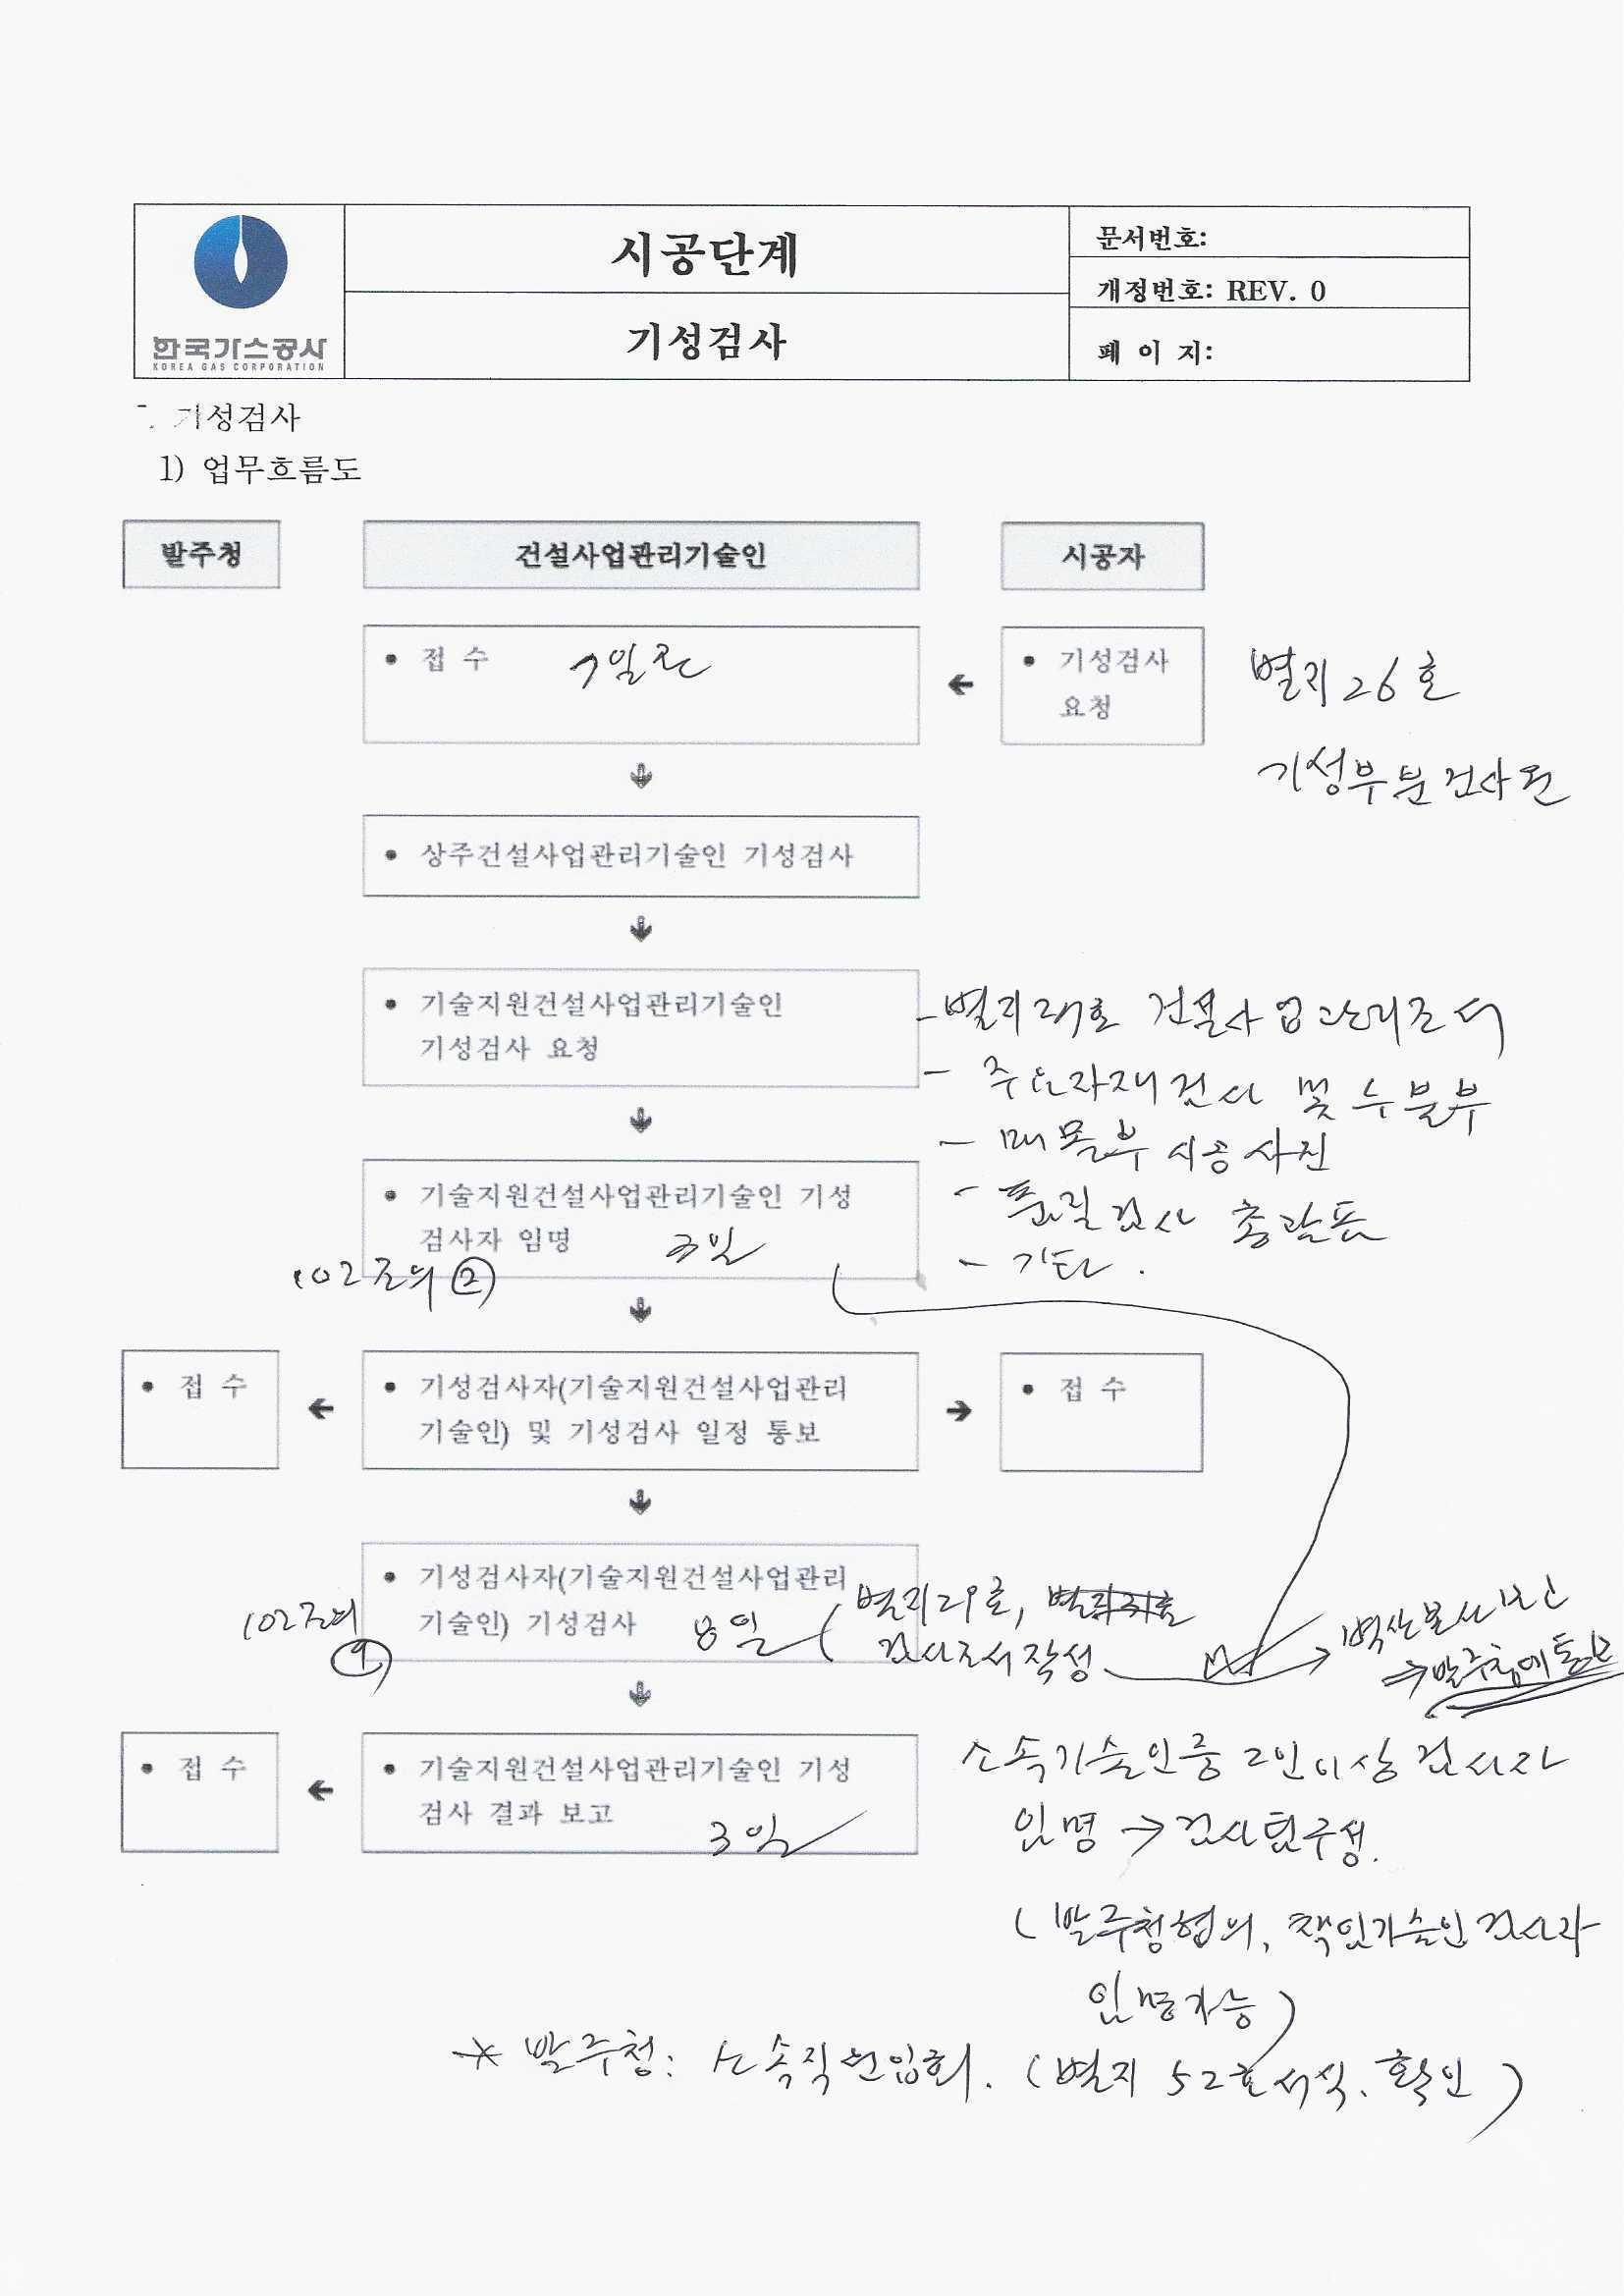 시공단계
기성검사
문서번호:
개정번호: REV. 0
페 이 지:
한국가스공사
KOREA GAS CORPORATION
기성검사
1) 업무흐름도
발주청
건설사업관리기술인
시공자
• 접 수 7일전
• 기성검사
요청
별지 26호
기성부분검사원
• 상주건설사업관리기술인 기성검사
• 기술지원건설사업관리기술인
기성검사 요청
- 별지 27호 건설사업관리조서
- 주요자재검사 및 수불부
- 매몰부 시공사진
- 품질검사 총괄표
- 기타.
• 기술지원건설사업관리기술인 기성
검사자 임명 3일
102조의 ②
• 접 수
• 기성검사자(기술지원건설사업관리
기술인) 및 기성검사 일정 통보
• 접 수
• 기성검사자(기술지원건설사업관리
기술인) 기성검사 8일
102조의
별지 29호,
검사조서작성
→ 발주청에 통보
• 접 수
• 기술지원건설사업관리기술인 기성
검사 결과 보고 3일
소속기술인중 2인이상 검사자
임명 → 검사팀구성.
( 발주청협의, 책임기술인 검사자
임명가능 )
* 발주청: 소속직원입회. ( 별지 52호서식. 확인 )